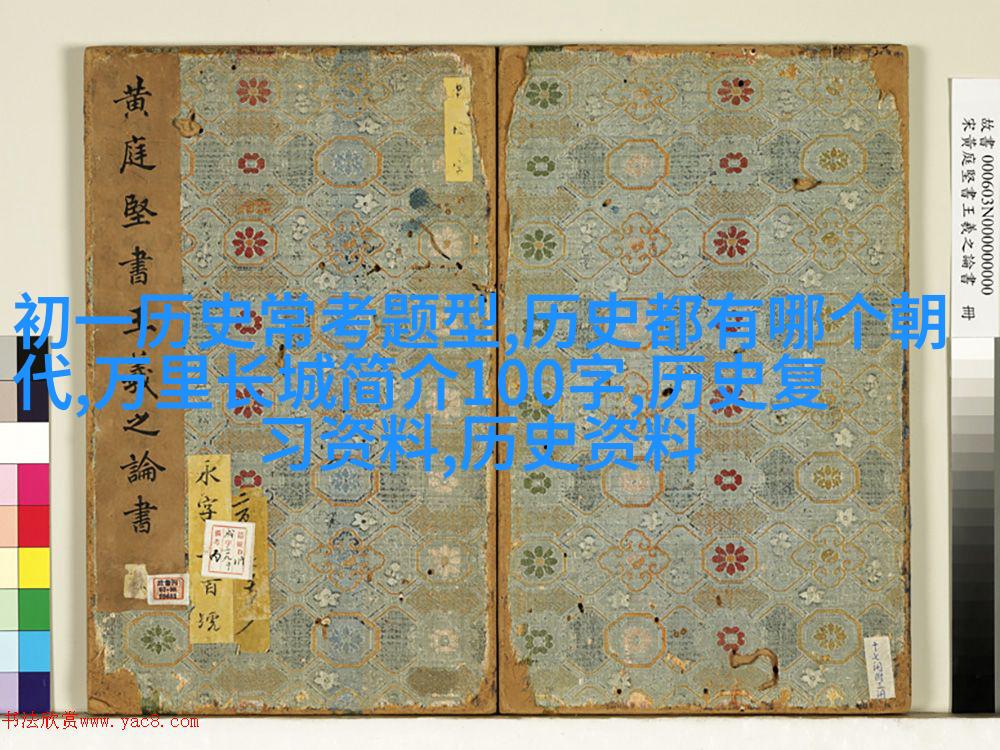 黄庭堅書王羲之論書
初一历史常考题型,历史都有哪个朝
代,万里长城简介100字,历史复
习资料,历史资料
永字
百號
故書 000603N000000000
宋黄庭堅書王羲之論書 冊
书法欣赏www.yac8.com